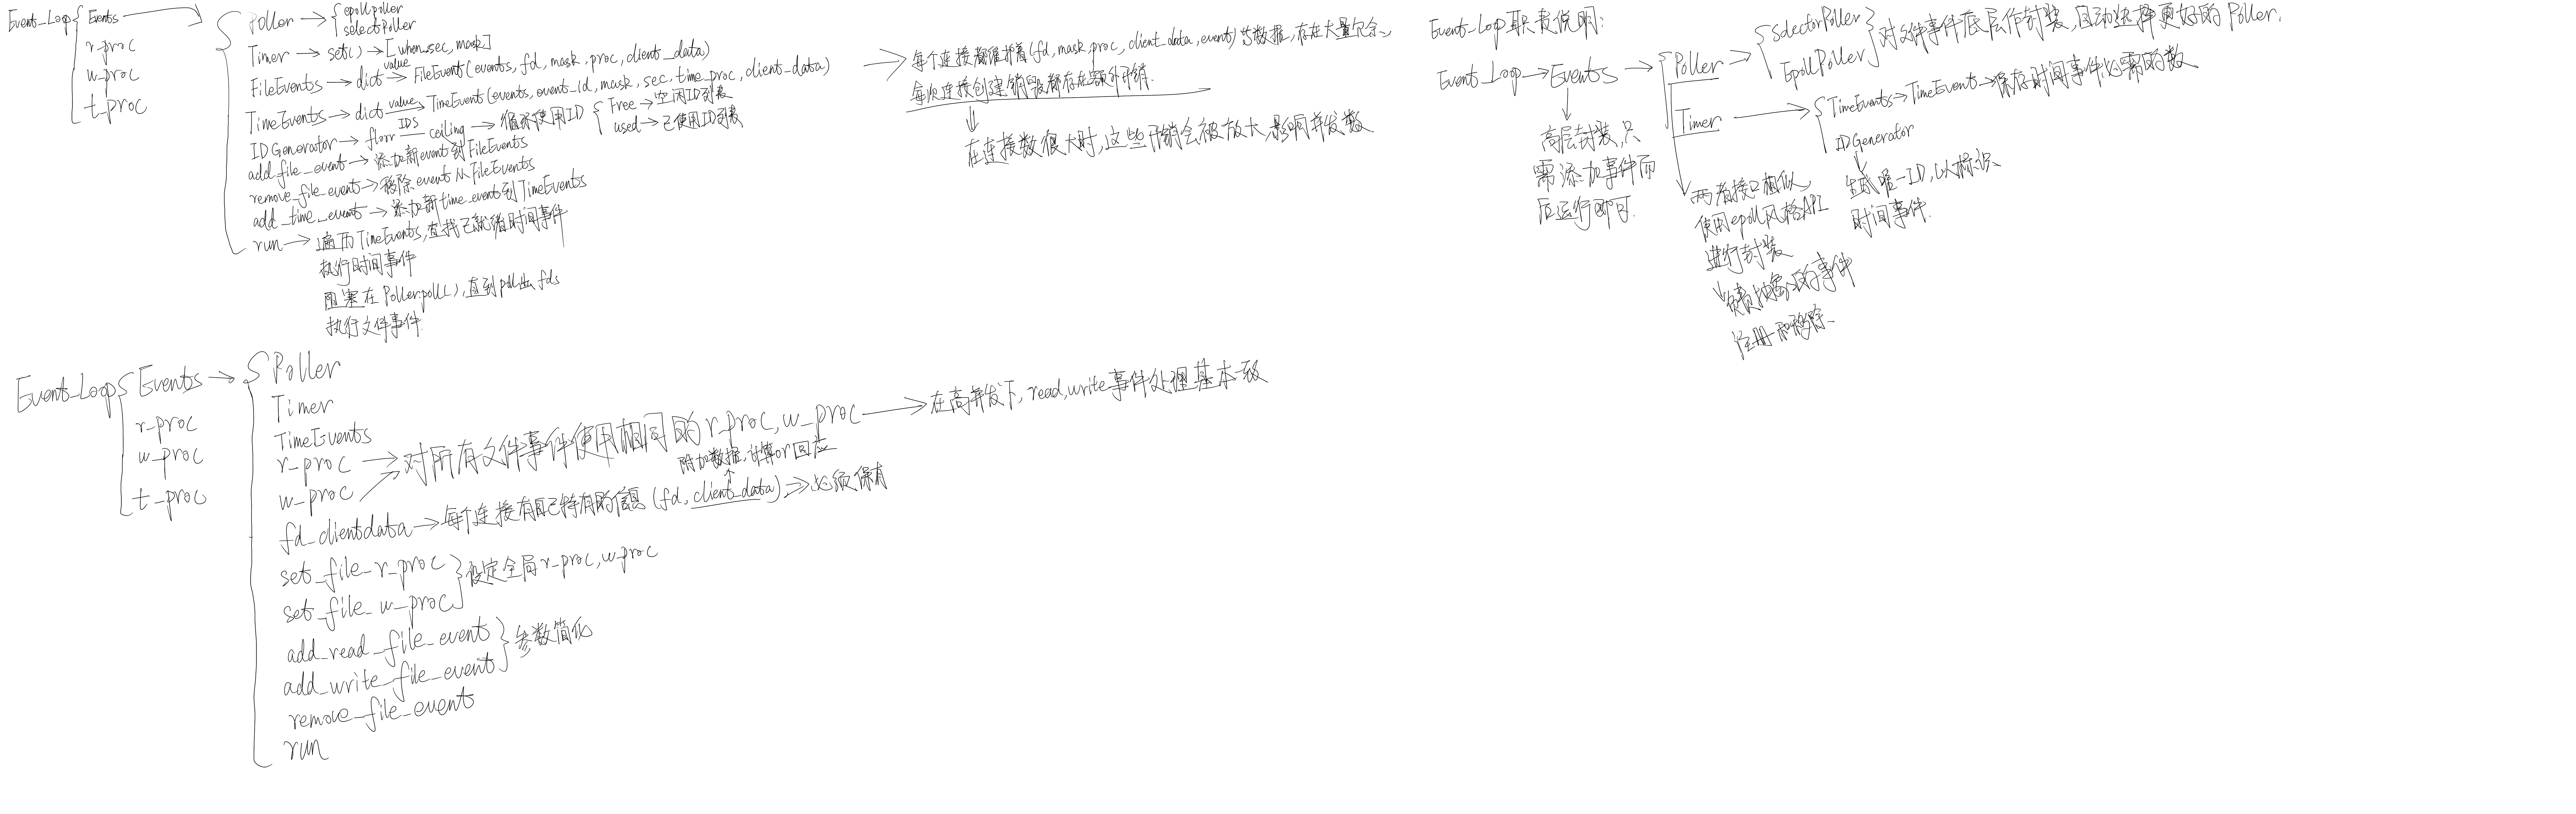 Event_Loop { Events →
r-proc
w-proc
t-proc
Poller → { epollpoller
selectPoller
Timer → set() → [when_sec, mask]
FileEvents → dict value→ FileEvent(events, fd, mask, proc, client_data)
TimeEvents → dict value→ TimeEvent(events, event_id, mask, sec, time_proc, client-data)
IDGenerator → floor IDS ceiling → 循环使用ID { Free → 空闲ID列表
used → 已使用ID列表
add_file_event → 添加新event到FileEvents
remove_file_event → 移除event从FileEvents
add_time_event → 添加新time_event到TimeEvents
run → 遍历TimeEvents,查找已就绪时间事件
执行时间事件
阻塞在Poller.poll(),直到poll出fds
执行文件事件.
→ 每个连接都维护着(fd, mask, proc, client_data, event)等数据,存在大量冗余、
每次连接创建销毁都存在额外开销.
⇓
在连接数很大时,这些开销会被放大,影响并发数.
Event_Loop职责说明:
Event_Loop → Events → { Poller → { SelectorPoller
EpollPoller } 对文件事件底层作封装,自动选择更好的Poller.
Timer → { TimeEvents → TimeEvent → 保存时间事件必需的数
IDGenerator
↓
生成唯一ID,以标识
时间事件.
高层封装,只
需添加事件而
后运行即可.
两者接口相似,
使用epoll风格API
进行封装
↓
负责抽象的事件
注册和移除.
Event_Loop { Events → { Poller
r-proc
w-proc
t-proc
Timer
TimeEvents
r-proc
w-proc → 对所有文件事件使用相同的r-proc,w-proc → 在高并发下,read,write事件处理基本一致
附加数据,计算or回应
fd_clientdata → 每个连接有自己特有的信息(fd, client_data) → 必须保有
set_file_r_proc
set_file_w_proc } 设定全局r-proc,w-proc
add_read_file_event
add_write_file_event } 参数简化
remove_file_event
run